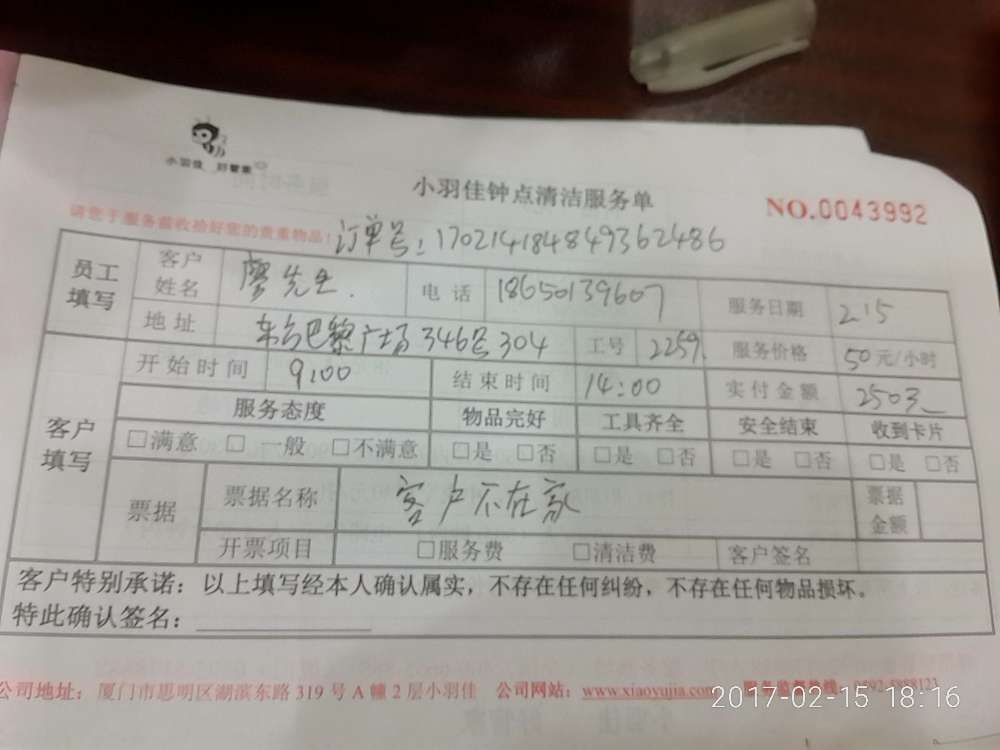 小羽佳 好管家
小羽佳钟点清洁服务单
NO.0043992
请您于服务前收拾好您的贵重物品!
订单号:170214184849362486
员工填写 客户姓名 廖先生. 电话 18650139607 服务日期 2.15
地址 东方巴黎广场346号304 工号 2259. 服务价格 50元/小时
客户填写 开始时间 9:00 结束时间 14:00 实付金额 250元
服务态度 物品完好 工具齐全 安全结束 收到卡片
□满意 □一般 □不满意 □是 □否 □是 □否 □是 □否 □是 □否
票据 票据名称 客户不在家 票据金额
开票项目 □服务费 □清洁费 客户签名
客户特别承诺:以上填写经本人确认属实,不存在任何纠纷,不存在任何物品损坏。
特此确认签名:
公司地址:厦门市思明区湖滨东路319号A幢2层小羽佳 公司网站:www.xiaoyujia.com 服务监督热线:0592-5888123
2017-02-15 18:16